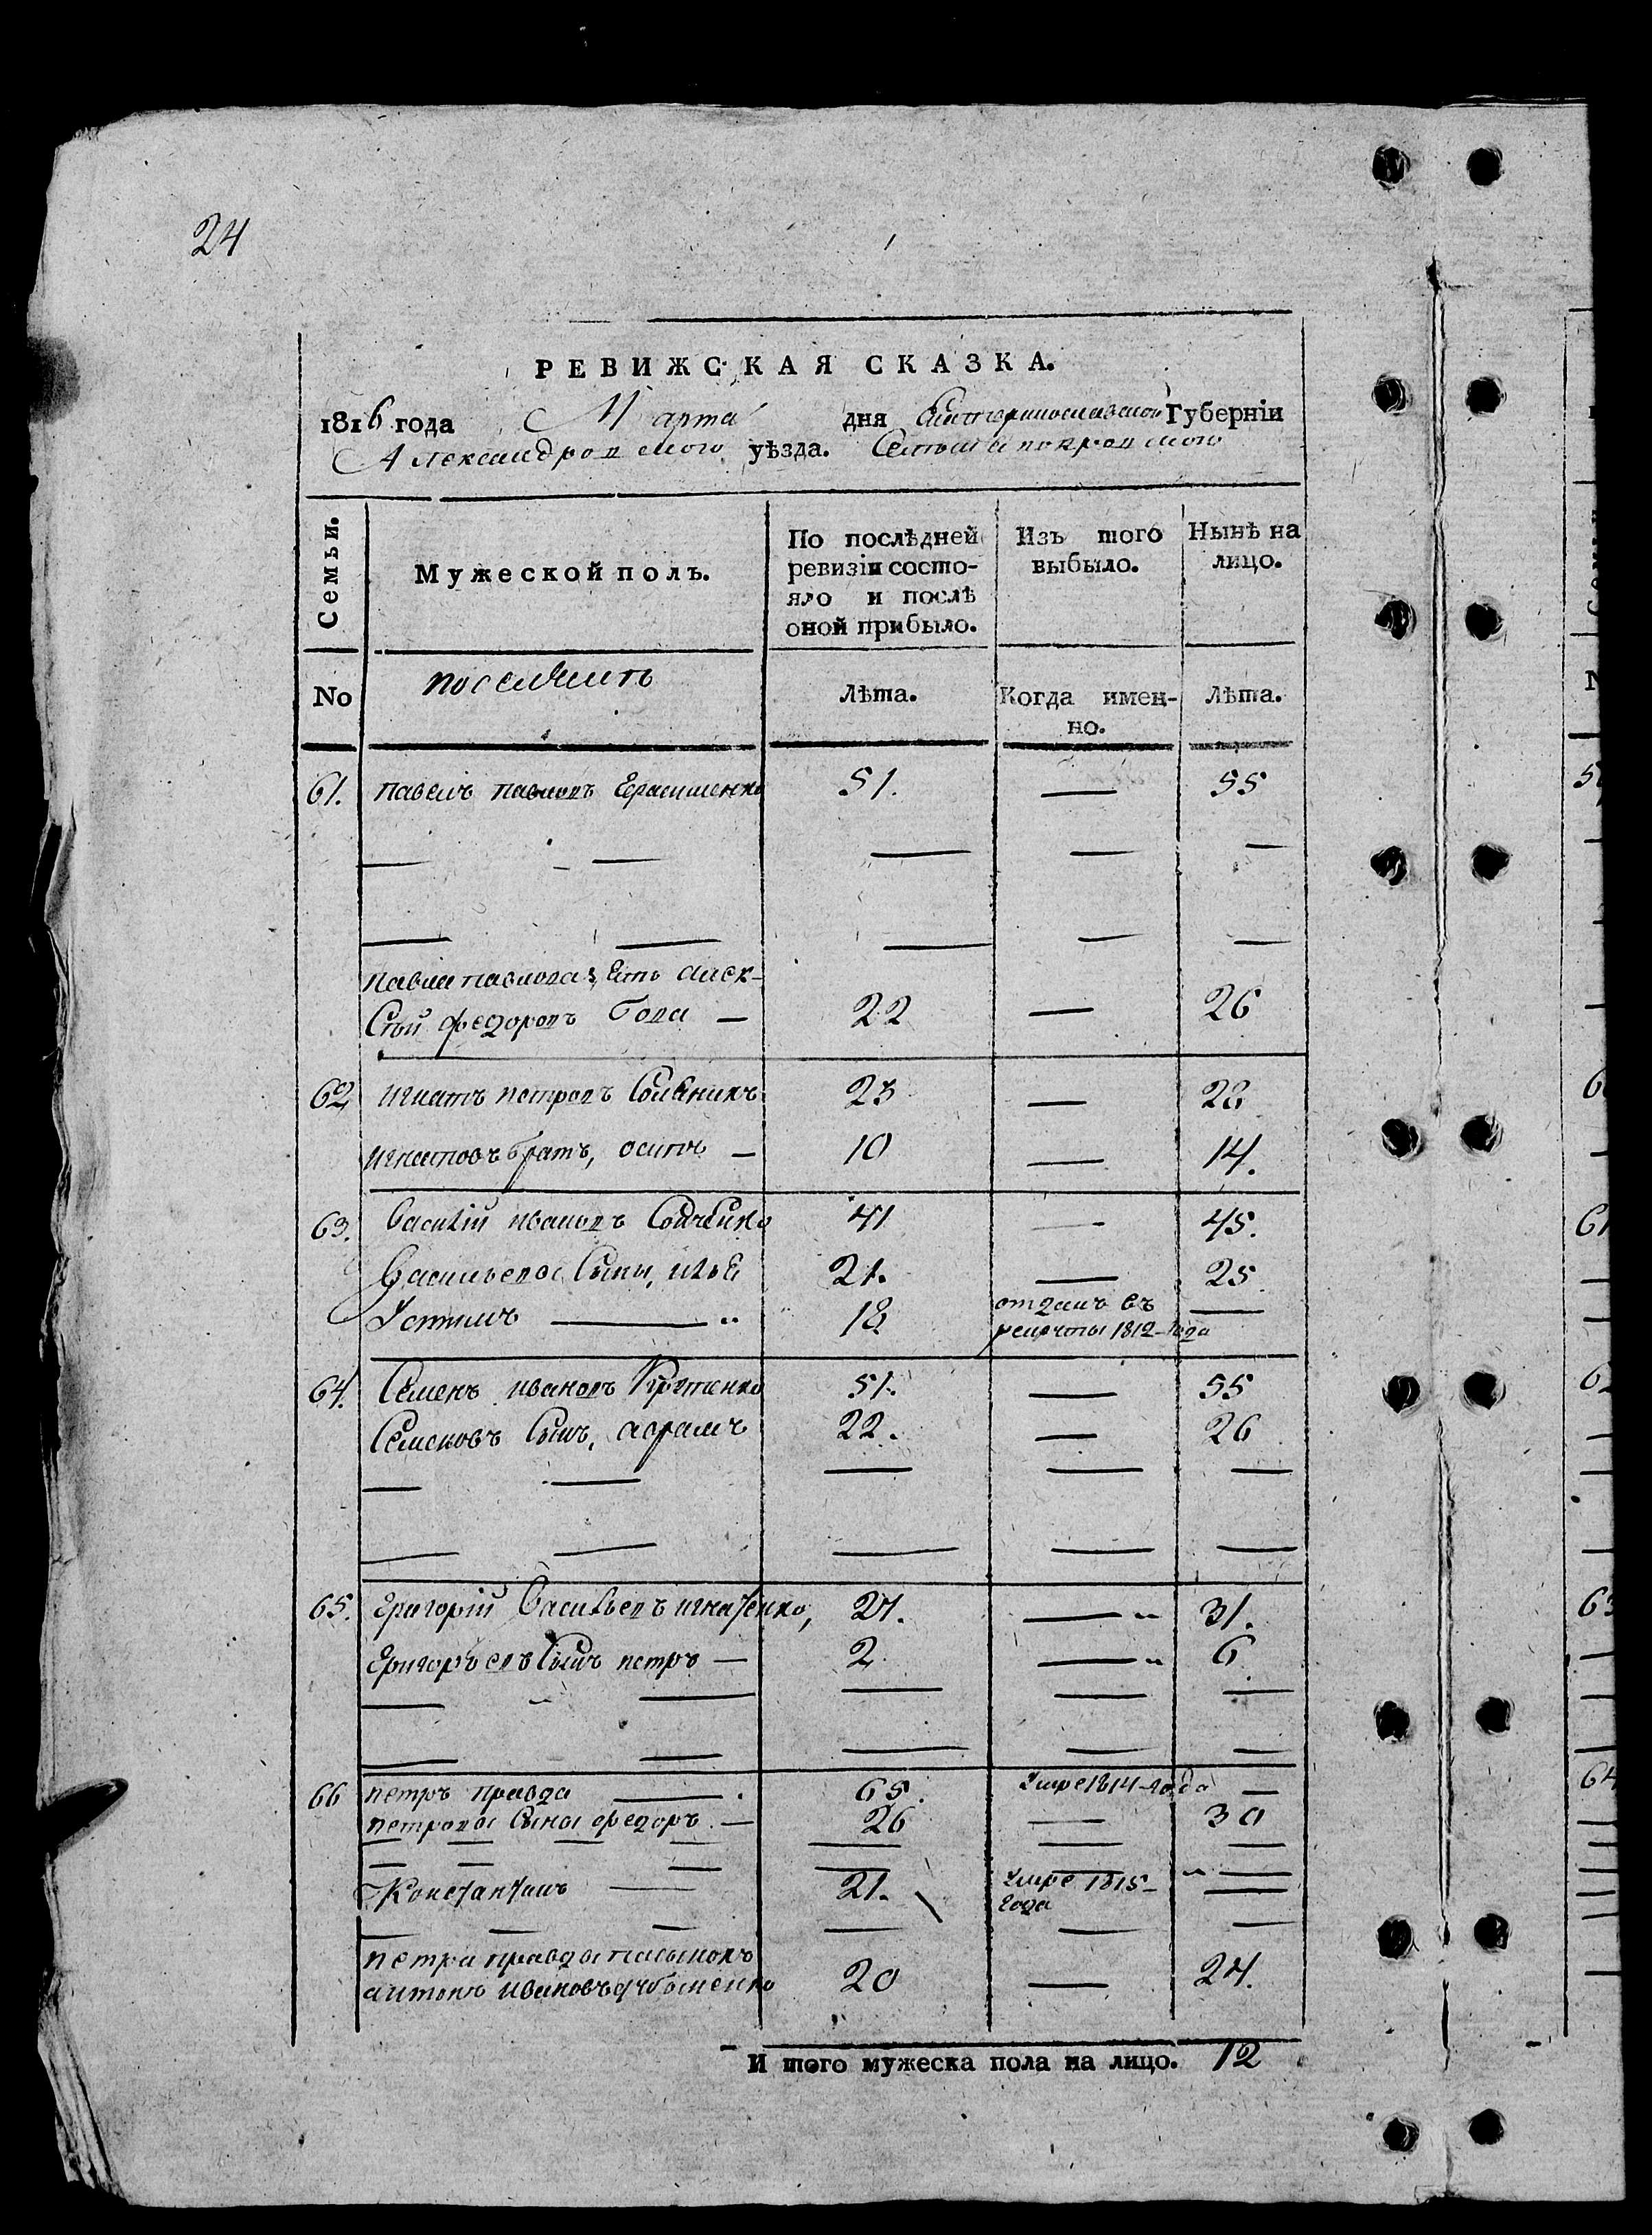 24
РЕВИЖСКАЯ СКАЗКА.
1816 года Марта дня Екатеринославской Губерніи
Александровского уѣзда. Села покровского
Семьи.
Мужеской полъ.
По послѣдней ревизіи состояло и послѣ оной прибыло.
Изъ того выбыло.
Нынѣ на лицо.
No
поселянъ
Лѣта.
Когда именно.
Лѣта.
61. павелъ павловъ Ерасименко 51. — 55
— — — — —
— — — — —
павла павлова зять алек-
сѣй федоровъ — 22 — 26
62 игнатъ петровъ Соляникъ 23 — 28
игнатовъ братъ, осипъ — 10 — 14.
63. Василій ивановъ 41 — 45.
Васильевы Сыны, илья 21. — 25
Устимъ — 18 отданъ въ рекруты 1812 года —
64. Семенъ ивановъ 51. — 55
Семеновъ Сынъ, абрамъ 22. — 26
— — — — —
— — — — —
65. Григорій Васильевъ игнатенко, 27. — 31.
Григорьевъ Сынъ петръ — 2 — 6
— — — — —
— — — — —
66 петръ правда — 65. Умре 1814 года —
петровы Сыны федоръ — 26 — 30
— — — — — — —
— — — — — —
Константинъ — 21. Умре 1815 года —
— — — — — —
петра правды пасынокъ
антонъ ивановъ 20 — 24.
И того мужеска пола на лицо. 12